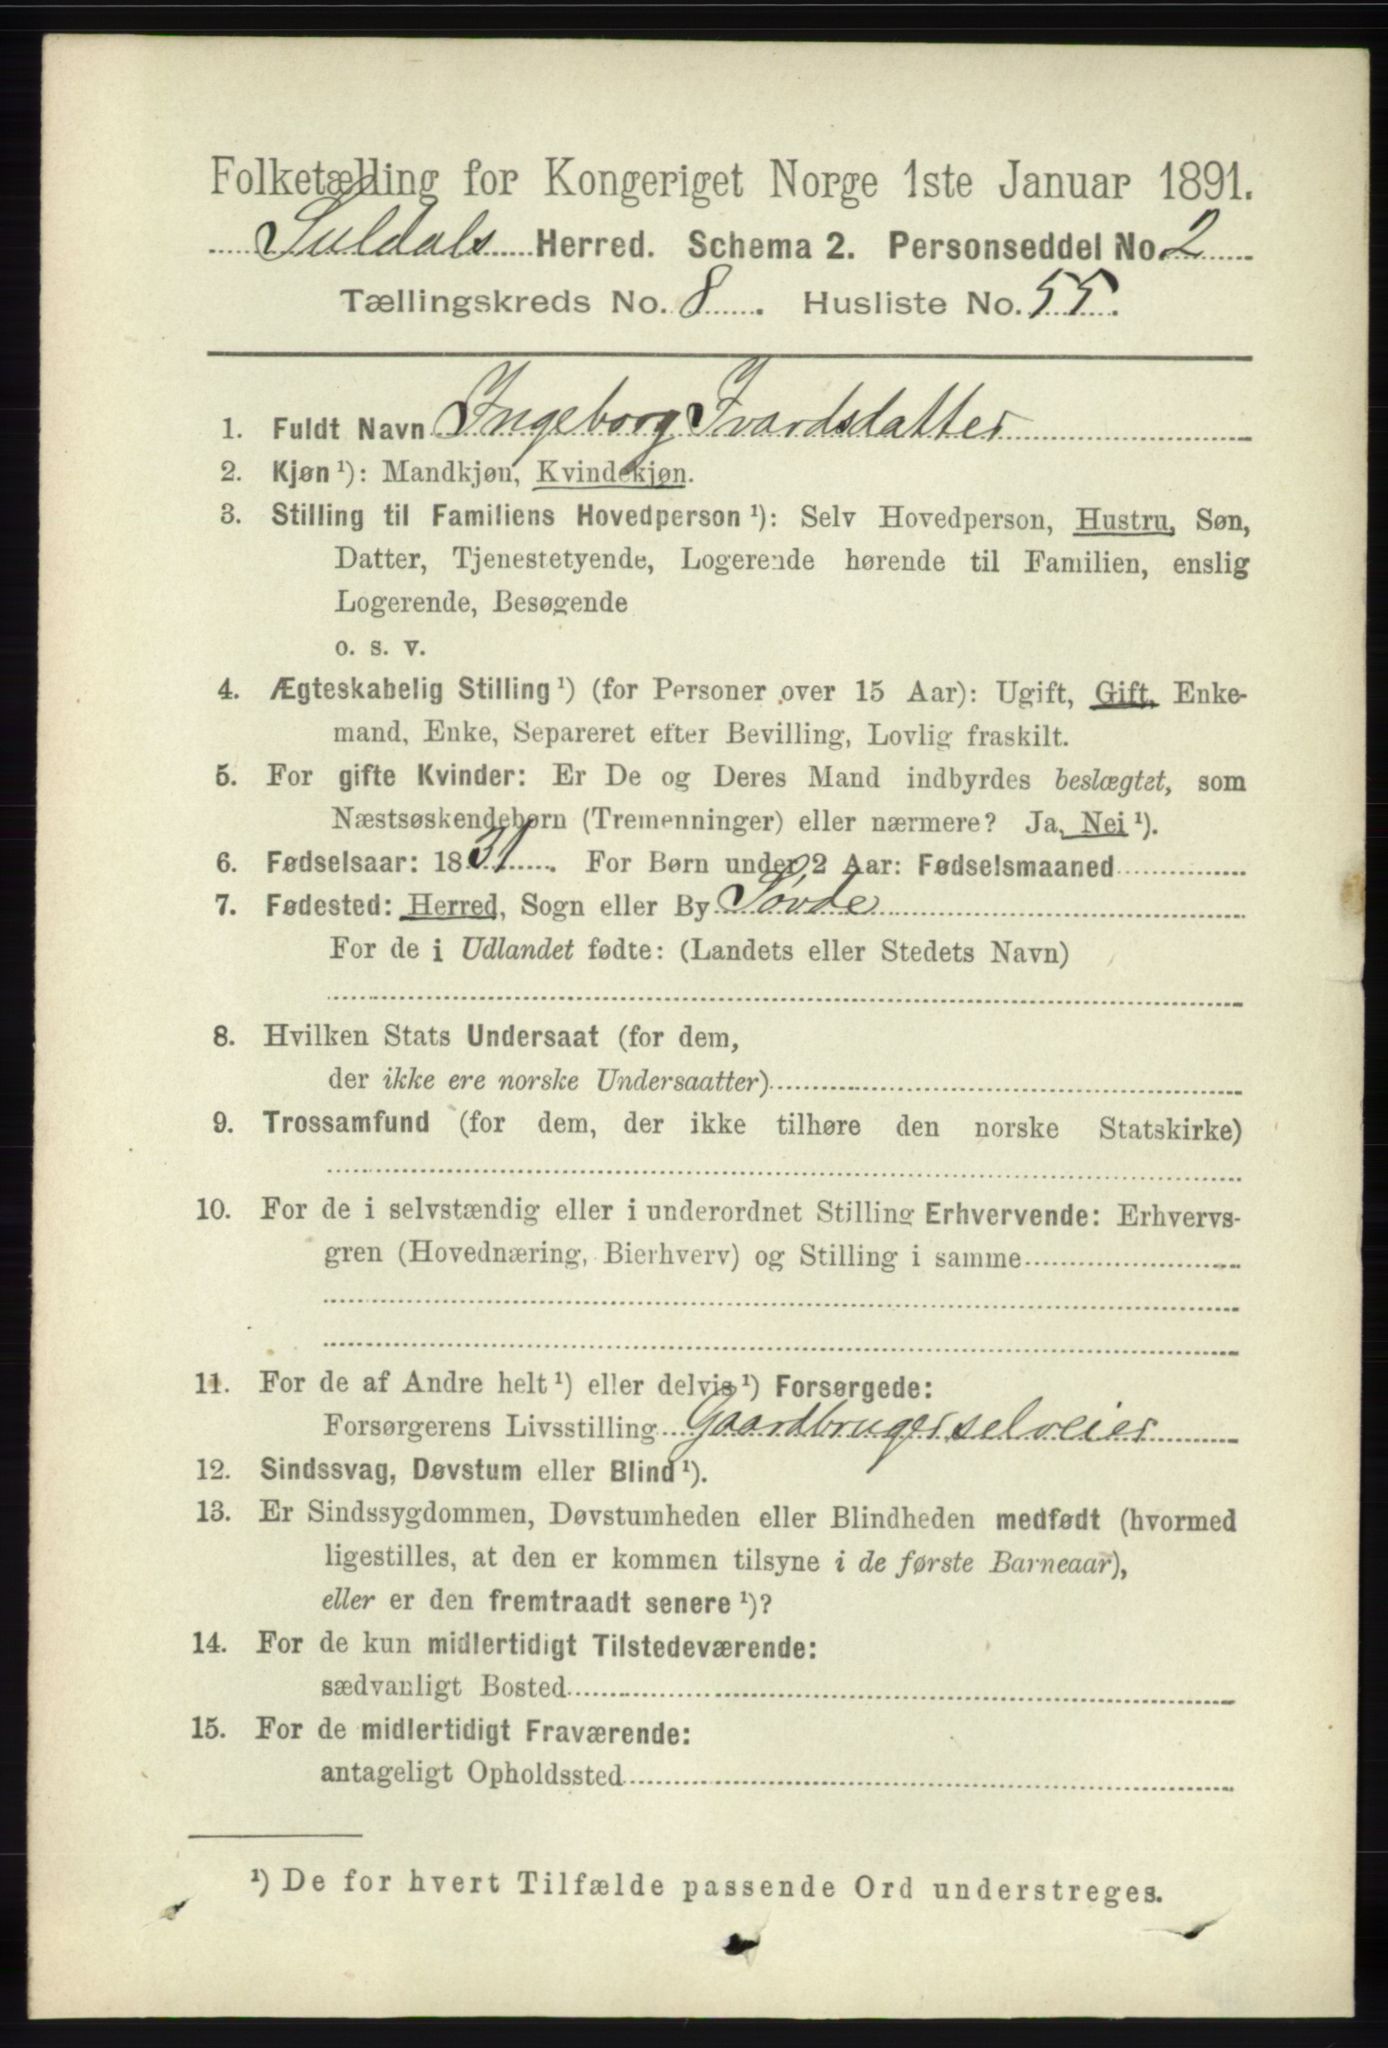 Folketælling for Kongeriget Norge 1ste Januar 1891.
Suldals Herred. Schema 2. Personseddel No. 2
Tællingskreds No. 8. Husliste No. 55.
1. Fuldt Navn Ingeborg Ivardsdatter
2. Kjøn ¹): Mandkjøn, Kvindekjøn.
3. Stilling til Familiens Hovedperson ¹): Selv Hovedperson, Hustru, Søn,
Datter, Tjenestetyende, Logerende hørende til Familien, enslig
Logerende, Besøgende
o. s. v.
4. Ægteskabelig Stilling ¹) (for Personer over 15 Aar): Ugift, Gift, Enke-
mand, Enke, Separeret efter Bevilling, Lovlig fraskilt.
5. For gifte Kvinder: Er De og Deres Mand indbyrdes beslægtet, som
Næstsøskendebørn (Tremenninger) eller nærmere? Ja, Nei ¹).
6. Fødselsaar: 1831. For Børn under 2 Aar: Fødselsmaaned
7. Fødested: Herred, Sogn eller By Søvde
For de i Udlandet fødte: (Landets eller Stedets Navn)
8. Hvilken Stats Undersaat (for dem,
der ikke ere norske Undersaatter)
9. Trossamfund (for dem, der ikke tilhøre den norske Statskirke)
10. For de i selvstændig eller i underordnet Stilling Erhvervende: Erhvervs-
gren (Hovednæring, Bierhverv) og Stilling i samme
11. For de af Andre helt ¹) eller delvis ¹) Forsørgede:
Forsørgerens Livsstilling Gaardbruger selveier
12. Sindssvag, Døvstum eller Blind ¹).
13. Er Sindssygdommen, Døvstumheden eller Blindheden medfødt (hvormed
ligestilles, at den er kommen tilsyne i de første Barneaar),
eller er den fremtraadt senere ¹)?
14. For de kun midlertidigt Tilstedeværende:
sædvanligt Bosted
15. For de midlertidigt Fraværende:
antageligt Opholdssted
¹) De for hvert Tilfælde passende Ord understreges.